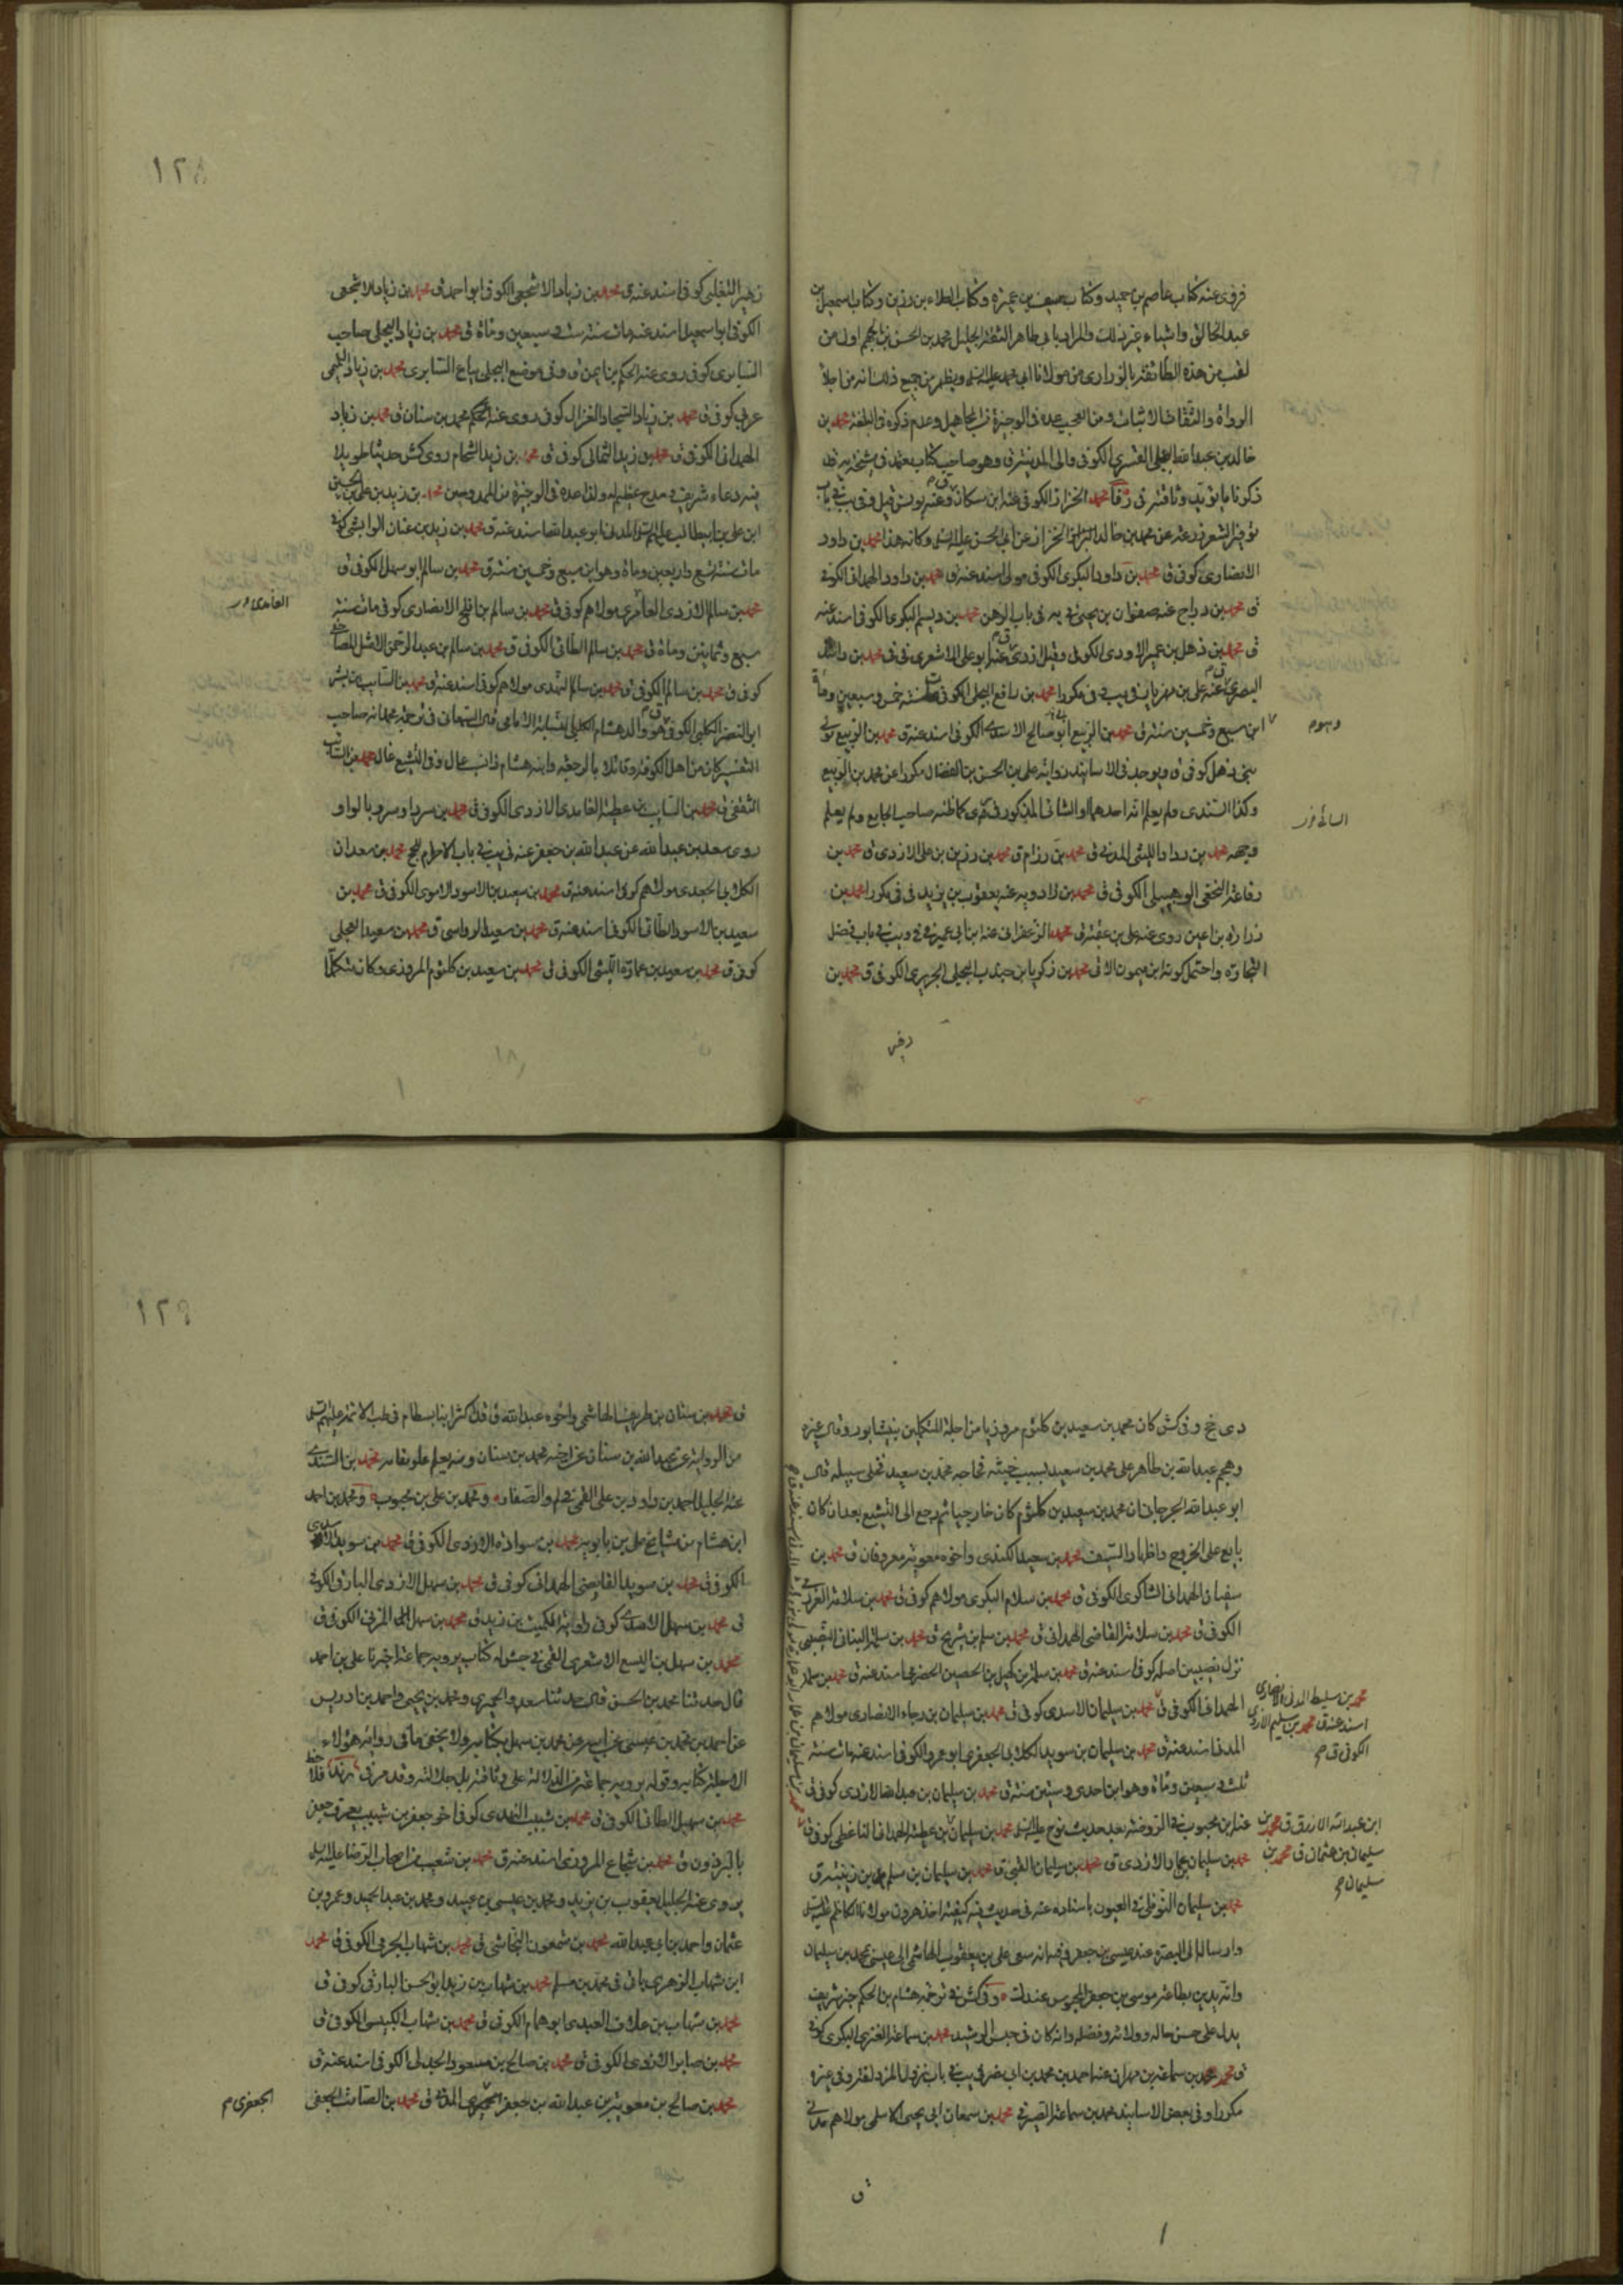 فروى عنه كتاب عاصم بن حميد وكتاب سيف بن عميرة وكتاب العلاء بن رزين وكتاب اسمعيل بن
عبد الخالق واشياء غير ذلك والمراد بابي طاهر الثقة الجليل محمد بن الحسن بن الجهم اول من
لقب من هذه الطائفة بالزراري من مولانا ابي محمد عليه السلم ويظهر من جميع ذلك انه من اجلاء
الرواة والثقات الاثبات ومن العجب عده في الوجيزة من المجاهيل وعدم ذكره في البلغة محمد بن
خالد بن عبد الله البجلي القسري الكوفي والى المدينة ق وهو صاحب كتاب معتمد في مشيخة يه وقد
ذكرنا ما يؤيد وثاقته في رقا محمد الخزاز الكوفي عنه ابن مسكان وعنه يونس قيل وفي يب في باب
توفير الشعر عنه عن محمد بن خالد الخزاز عن ابي الحسن عليه السلم وكانه هذا محمد بن داود
الانصاري كوفي ق محمد بن داود البكري الكوفي مولى اسند عنه ق محمد بن داود الهمداني الكوفي
ق محمد بن دراج عنه صفوان بن يحيى في يه في باب الرهن محمد بن ديسم البكري الكوفي اسند عنه
ق محمد بن ذهل بن عمير الاودي الكوفي وقيل ازدي عنه ابو علي الاشعري في في محمد بن راشد
البصري عنه علي بن مهزيار في يب في مكررا محمد بن رافع البجلي الكوفي مات سنة خمس وسبعين وماة
وهو م
ابن سبع وخمسين سنة ق محمد بن الربيع ابو صالح الاسدي الكوفي اسند عنه ق محمد بن الربيع مولى
بني ذهل كوفي ق ويوجد في الاسانيد رواية علي بن الحسن بن الفضال مكررا عن محمد بن الربيع
وكذا السندي ولم يعلم انه احدهما او الثاني المذكور في كما ظنه صاحب الجامع ولم يعلم
وجهه محمد بن رداد الليثي المدني ق محمد بن رزام ق محمد بن رزين بن علي الازدي ق محمد بن
رفاعة النخعي الوهبيلي الكوفي ق محمد بن زادويه عنه يعقوب بن يزيد في في مكررا محمد بن
زرارة بن اعين روى عنه علي بن عقبة ق محمد الزعفراني عنه ابن ابي عمير في في ويب في باب فضل
التجارة واحتمل كونه ابن ميمون الاتي محمد بن زكريا بن جندب البجلي الجريري الكوفي ق محمد بن
١٢٨
زهير التغلبي كوفي اسند عنه ق محمد بن زياد الاشجعي الكوفي ابو احمد ق محمد بن زياد الاشجعي
الكوفي ابو اسمعيل اسند عنه مات سنة ست وسبعين وماة ق محمد بن زياد البجلي صاحب
السابري كوفي روى عنه الحكم بن ايمن ق وفي موضع البجلي بياع السابري محمد بن زياد التميمي
عربي كوفي ق محمد بن زياد السجاد الغزال كوفي روى عنه الحكم ومحمد بن سنان ق محمد بن زياد
الهمداني الكوفي ق محمد بن زيد الثمالي كوفي ق محمد بن زيد الشحام روى كش حديثا طويلا
فيه دعاء شريف في مدح عظيم له ولذا عده في الوجيزة من الممدوحين محمد بن زيد بن علي بن الحسين
ابن علي بن ابيطالب عليهم السلم المدني ابو عبد الله اسند عنه ق محمد بن زيد بن عنان الوابشي كوفي
مات سنة تسع واربعين وماة وهو ابن سبع وخمسين سنة ق محمد بن سالم ابو سهل الكوفي ق
محمد بن سالم الازدي العامري مولاهم كوفي ق محمد بن سالم بن افلح الانصاري كوفي مات سنة
سبع وثمانين وماة ق محمد بن سالم الطائي الكوفي ق محمد بن سالم بن عبد الرحمن الاشل المصاحفي
كوفي ق محمد بن سالم الكوفي ق محمد بن سالم النهدي مولاهم كوفي اسند عنه ق محمد بن السائب بن بشر
ابو النضر الكلبي الكوفي ق هو والد هشام الكلبي نسابة الامامي قال السمعاني في ترجمة محمد انه صاحب
التفسير كان من اهل الكوفة وقائلا بالرجعة وابنه هشام ذا نسب عال وفي التشيع غال محمد بن السائب
الثقفي ق محمد بن السائب بن عطية الغامدي الازدي الكوفي ق محمد بن سرد او سرو بالواو
روى سعد بن عبد الله عن عبد الله بن جعفر عنه في يب في باب الاحرام للحج محمد بن سعدان
الكلابي الجعدي مولاهم كوفي اسند عنه ق محمد بن سعيد بن الاسود الاموي الكوفي ق محمد بن
سعيد بن الاسود الطائي الكوفي اسند عنه ق محمد بن سعيد الرواسي ق محمد بن سعيد العجلي
كوفي ق محمد بن سعيد بن عمارة الليثي الكوفي ق محمد بن سعيد بن كلثوم المروزي وكان متكلما
دي جخ وفي كش كان محمد بن سعيد بن كلثوم مروزيا من اجلة المتكلمين بنيشابور وقال غيره
وهجم عبد الله بن طاهر على محمد بن سعيد بسبب خبثه فحاجه محمد بن سعيد فخلى سبيله قال
ابو عبد الله الجرجاني ان محمد بن سعيد بن كلثوم كان خارجيا ثم رجع الى التشيع بعد ان كان
بايع على الخروج واظهار السيف محمد بن سعيد الكندي واخوه معوية معروفان ق محمد بن
سفيان الهمداني الشاكري الكوفي ق محمد بن سلام البكري مولاهم كوفي ق محمد بن سلامة العرني
الكوفي ق محمد بن سلامة القاضي الهمداني ق محمد بن سلم بن شريح ق محمد بن سلمة البناني النصيبي
نزل نصيبين اصله كوفي اسند عنه ق محمد بن سلمة بن كهيل بن الحصين الحضرمي اسند عنه ق محمد بن سلمة
الهمداني الكوفي ق محمد بن سليمان الاسدي كوفي ق محمد بن سليمان بن رجاء الانصاري مولاهم
المدني اسند عنه ق محمد بن سليمان بن سويد الكلابي الجعفري ابو عمرو الكوفي اسند عنه مات سنة
ثلث وسبعين وماة وهو ابن احدى وستين سنة ق محمد بن سليمان بن عبد الله الازدي كوفي ق
عنه ابن محبوب في الروضة بعد حديث نوح عليه السلم محمد بن سليمان بن عطية الهمداني الناعطي كوفي ق
محمد بن سليمان بن عمار الازدي ق محمد بن سليمان القبي ق محمد بن سليمان بن سليم بن زينة ق
محمد بن سليمان النوفلي في العيون باسناده عنه في حديث فيه كيفية اخذ هرون مولانا الكاظم عليه السلم
وارساله الى البصرة عند عيسى بن جعفر وفيه انه سعى علي بن يعقوب الهاشمي الى عيسى محمد بن سليمان
وانه يدين بطاعة موسى بن جعفر المحبوس عندك وفي كش في ترجمة هشام بن الحكم خبر شريف
يدل على حسن حاله وولائه وفضله وانه كان في حبس الرشيد محمد بن سماعة العنزي البكري كوفي
ق محمد بن سماعة بن مهران عنه احمد بن محمد بن ابي نصر في يب في باب نزول المزدلفة وفي غيره
مكررا وفي بعض الاسانيد محمد بن سماعة الصيرفي محمد بن سمعان ابي يحيى الاسلمي مولاهم مدني
محمد بن سليط المدني الانصاري
اسند عنه ق محمد بن سليم الازدي
الكوفي ق صح
ابن عبد الله الازرق ق محمد بن
سليمان بن عثمان ق محمد بن
سليمان صح
١٢٩
ق محمد بن سنان بن طريف الهاشمي واخوه عبد الله ق قد اكثر ابنا بسطام في طب الائمة عليهم السلم
من الرواية عن عبد الله بن سنان عن اخيه محمد بن سنان ومنه يعلم علو مقامه محمد بن السندي
عنه الجليل احمد بن داود بن علي القمي في لم والصفار ومحمد بن علي بن محبوب ومحمد بن احمد
ابن هشام من مشايخ علي بن بابويه محمد بن سوادة الازدي الكوفي ق محمد بن سويد الاسدي
الكوفي ق محمد بن سويد القابضي الهمداني كوفي ق محمد بن سهل الازدي البارقي الكوفي
ق محمد بن سهل الاسدي كوفي راوية الكميت بن زيد ق محمد بن سهل المزني الكوفي ق
محمد بن سهل بن اليسع الاشعري القمي في جش له كتاب يرويه جماعة اخبرنا علي بن احمد
قال حدثنا محمد بن الحسن قال حدثنا سعد والحميري ومحمد بن يحيى واحمد بن ادريس
عن احمد بن محمد بن عيسى عن ابيه عن محمد بن سهل بكتابه ولا يخفى ما في رواية هؤلاء
الاجلة كتابه وقوله يرويه جماعة من الدلالة على وثاقته بل جلالته وقد مر في فلاحظ
محمد بن سهيل الطائي الكوفي ق محمد بن شبيب النهدي كوفي اخو جعفر بن شبيب يعرف جعفر
بالبرذون ق محمد بن شجاع المروزي اسند عنه ق محمد بن شعيب من اصحاب الرضا عليه السلم
يروى عنه الجليل يعقوب بن يزيد ومحمد بن عيسى بن عبيد ومحمد بن عبد الحميد وعمرو بن
عثمان واحمد بن ابي عبد الله محمد بن شمعون النجاشي ق محمد بن شهاب الجرمي الكوفي ق محمد
ابن شهاب الزهري ياتي في محمد بن مسلم محمد بن شهاب بن زيد ابو الحسن البارقي كوفي ق
محمد بن شهاب بن علاق العبدي ابو همام الكوفي ق محمد بن شهاب الكبيسي الكوفي ق
محمد بن صابر الازدي الكوفي ق محمد بن صالح بن مسعود الجدلي الكوفي اسند عنه ق
محمد بن صالح بن معوية بن عبد الله بن جعفر المدني ق محمد بن الصامت الجعفي
الجعفري م